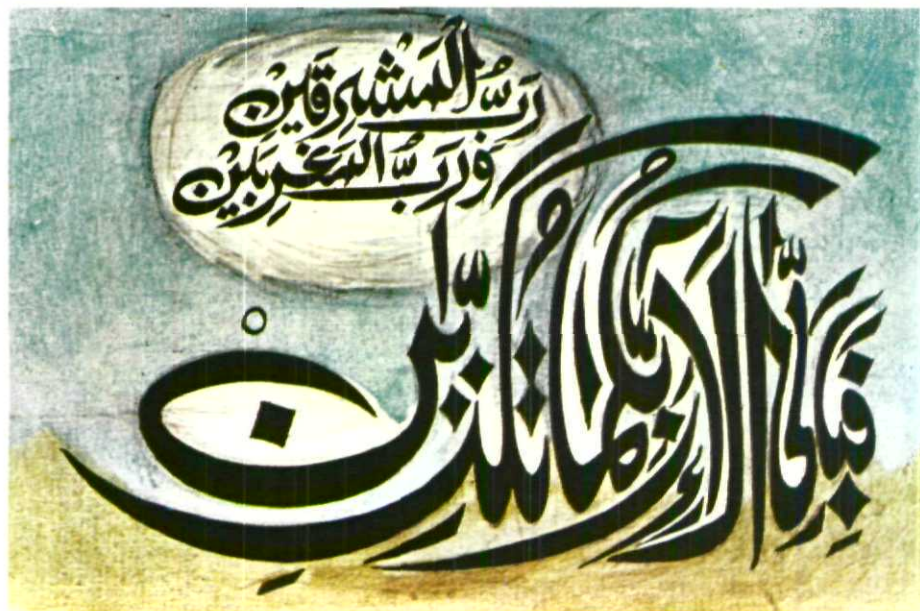 رَبُّ الْمَشْرِقَيْنِ
وَرَبُّ الْمَغْرِبَيْنِ
فَبِأَيِّ آلَاءِ رَبِّكُمَا تُكَذِّبَانِ